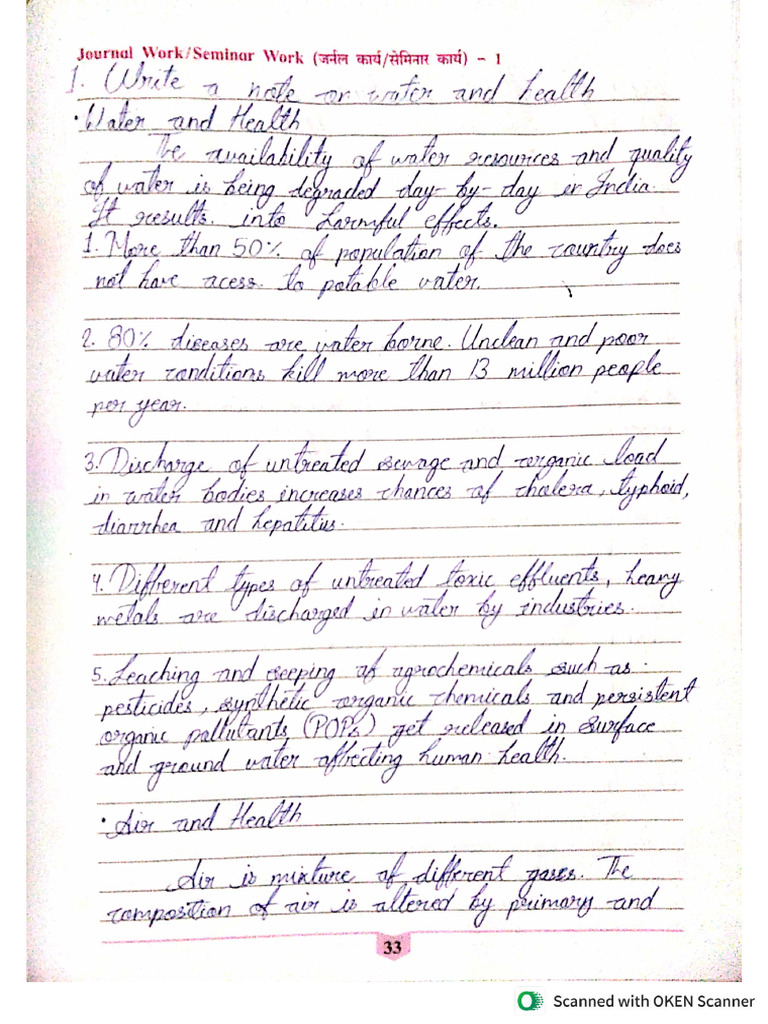 Journal Work/Seminar Work (जर्नल कार्य/सेमिनार कार्य) - 1
1. Write a note on water and health
• Water and Health
The availability of water resources and quality
of water is being degraded day-by-day in India.
It results. into harmful effects.
1. More than 50% of population of the country does
not have acess. to potable water.
2. 80% diseases are water borne. Unclean and poor
water conditions kill more than 13 million people
per year.
3. Discharge of untreated sewage and organic load
in water bodies increases chances of cholera, typhoid,
diarrhea and hepatitis.
4. Different types of untreated toxic effluents, heavy
metals are discharged in water by industries.
5. Leaching and seeping of agrochemicals such as
pesticides, synthetic organic chemicals and persistent
organic pallutants (POPs) get released in surface
and ground water affecting human health.
• Air and Health
Air is mixture of different gases. The
composition of air is altered by primary and
33
Scanned with OKEN Scanner